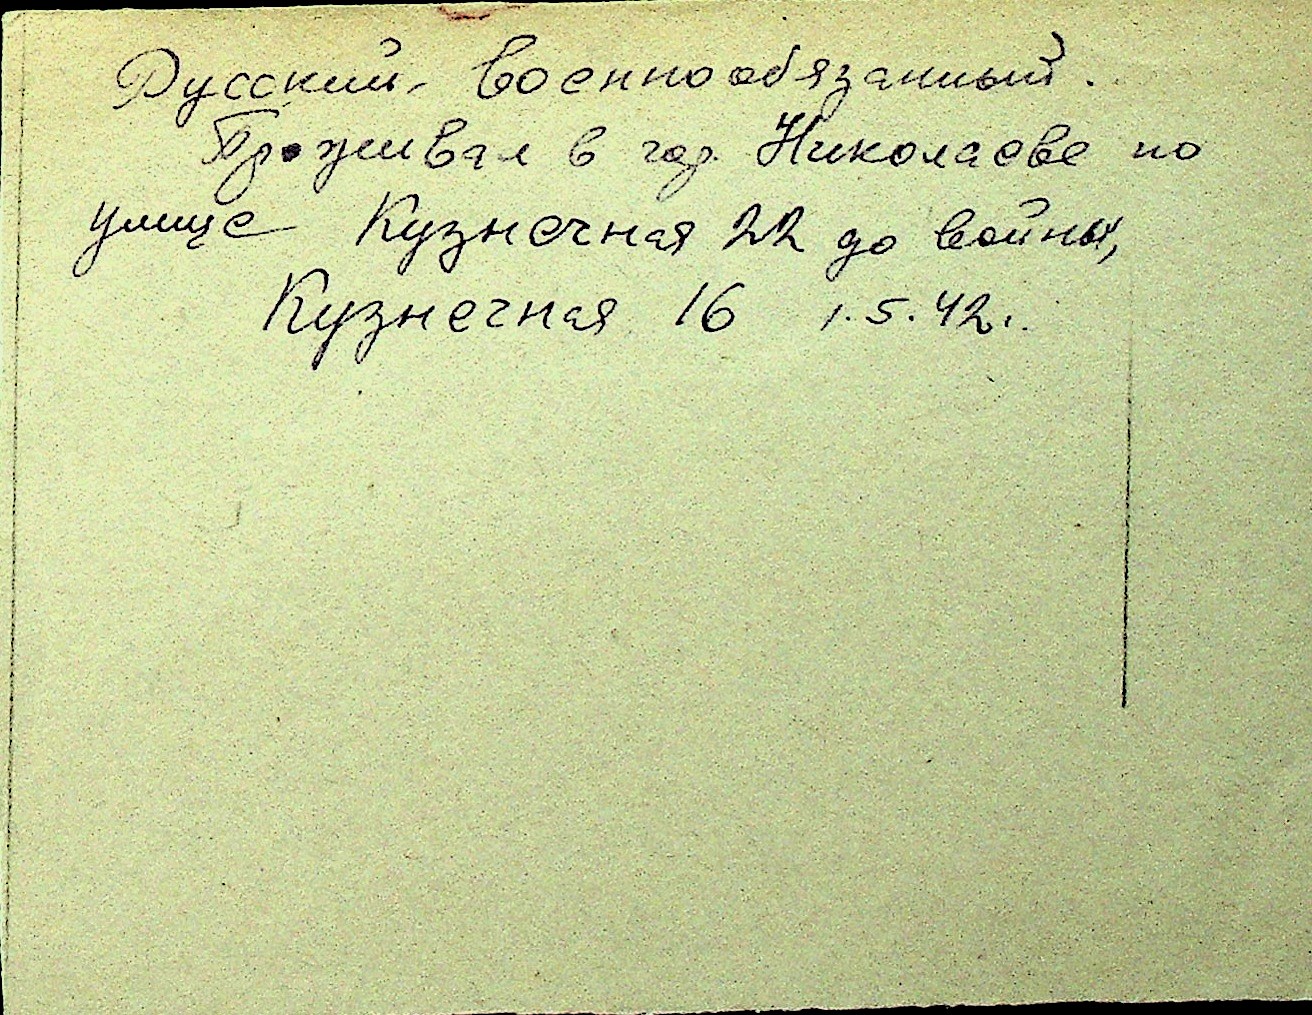 Русский, военнообязанный.
Проживал в гор. Николаеве по
улице Кузнечная 22 до войны,
Кузнечная 16 1.5.42г.